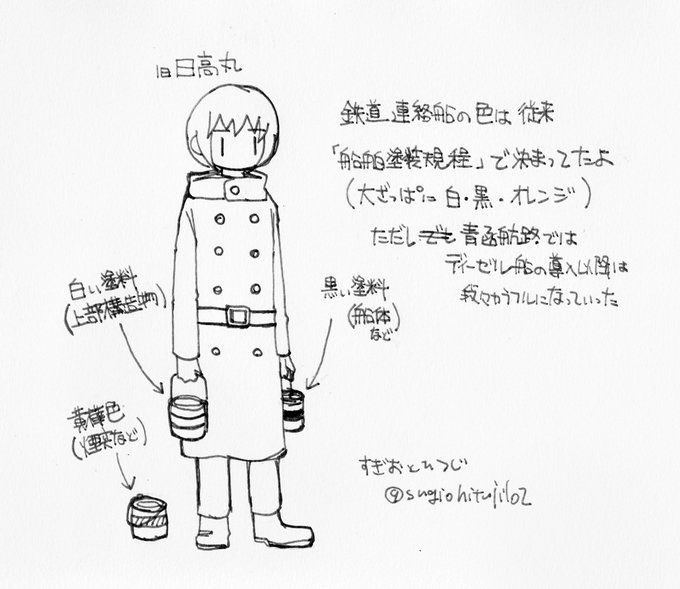 旧日高丸
鉄道連絡船の色は従来
「船舶塗装規程」で決まってたよ
(大ざっぱに白・黒・オレンジ)
ただし でも 青函航路では
ディーゼル船の導入以降は
段々カラフルになっていった
白い塗料
(上部構造物)
黒い塗料
(船体
など)
黄樺色
(煙突など)
すぎおとひつじ
@sugiohitujiloz